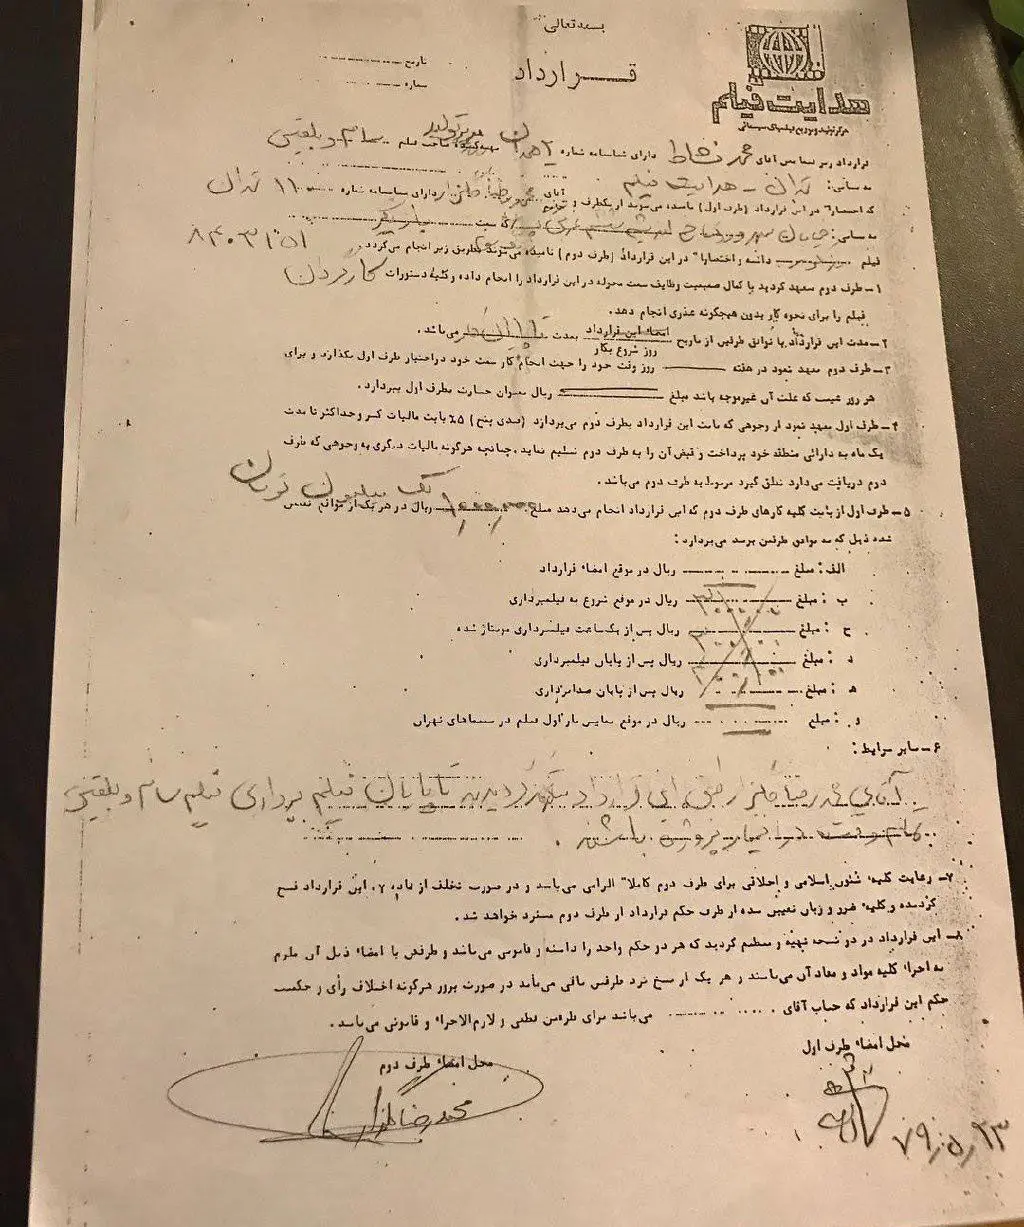 بسمه تعالی
قرارداد
تاریخ
شماره
هدایت فیلم
مرکز تولید و توزیع فیلمهای سینمائی
قرارداد زیر فیمابین آقای محمد نشاط دارای شناسنامه شماره ۲ همدان تهیه کننده / صاحب فیلم سام و بلقیس
به نشانی: تهران - هدایت فیلم
که اختصارا" در این قرارداد (طرف اول) نامیده می‌شوند از یکطرف و آقای دارای شناسنامه شماره ۱۱ تهران
به نشانی: خیابان سهروردی که سمت بازیگر
فیلم داشته و اختصارا" در این قرارداد (طرف دوم) نامیده می‌شوند بطریق زیر انجام می‌گردد. ۸۴۰۳۱۵۱
۱- طرف دوم متعهد گردید با کمال صمیمیت وظایف سمت محوله در این قرارداد را انجام داده و کلیه دستورات کارگردان
فیلم را برای نحوه کار بدون هیچگونه عذری انجام دهد.
۲- مدت این قرارداد با توافق طرفین از تاریخ امضاء این قرارداد / روز شروع بکار بمدت تا پایان می‌باشد.
۳- طرف دوم متعهد نمود در هفته روز وقت خود را جهت انجام کار سمت خود در اختیار طرف اول بگذارد و برای
هر روز غیبت که علت آن غیرموجه باشد مبلغ ریال بعنوان خسارت بطرف اول بپردازد.
۴- طرف اول متعهد نمود از وجوهی که بابت این قرارداد بطرف دوم می‌پردازد (صدی پنج) ۵٪ بابت مالیات کسر و حداکثر تا مدت
یک ماه به دارائی منطقه خود پرداخت و قبض آن را به طرف دوم تسلیم نماید، چنانچه هرگونه مالیات دیگری به وجوهی که طرف
دوم دریافت می‌دارد تعلق گیرد مربوط به طرف دوم می‌باشد.
یک میلیون تومان
۵- طرف اول از بابت کلیه کارهای طرف دوم که این قرارداد انجام می‌دهد مبلغ ریال در هر یک از مواقع تعیین
شده ذیل که به توافق طرفین برسد می‌پردازد:
الف: مبلغ ریال در موقع امضاء قرارداد
ب: مبلغ ریال در موقع شروع به فیلمبرداری
ج: مبلغ ریال پس از یکساعت فیلمبرداری مونتاژ شده
د: مبلغ ریال پس از پایان فیلمبرداری
ه: مبلغ ریال پس از پایان صدابرداری
و: مبلغ ریال در موقع نمایش بار اول فیلم در سینماهای تهران
۶- سایر شرایط:
آقای محمدرضا گلزار طی این قرارداد متعهد گردیدند تا پایان فیلم برداری فیلم سام و بلقیس
تمام وقت در باشند.
۷- رعایت کلیه شئون اسلامی و اخلاقی برای طرف دوم کاملا" الزامی می‌باشد و در صورت تخلف از ماده ۷، این قرارداد فسخ
گردیده و کلیه ضرر و زیان تعیین شده از طرف حکم قرارداد از طرف دوم مسترد خواهد شد.
۸- این قرارداد در دو نسخه تهیه و تنظیم گردید که هر دو حکم واحد را داشته و قانونی می‌باشد و طرفین با امضاء ذیل آن ملزم
به اجراء کلیه مواد و مفاد آن می‌باشند و هر یک از نسخ نزد طرفین باقی می‌ماند در صورت بروز هرگونه اختلاف رأی و حکمیت
حکم این قرارداد که جناب آقای می‌باشد برای طرفین قطعی و لازم‌الاجراء و قانونی می‌باشد.
محل امضاء طرف اول
محل امضاء طرف دوم
محمدرضا گلزار
۷۹/۵/۲۳